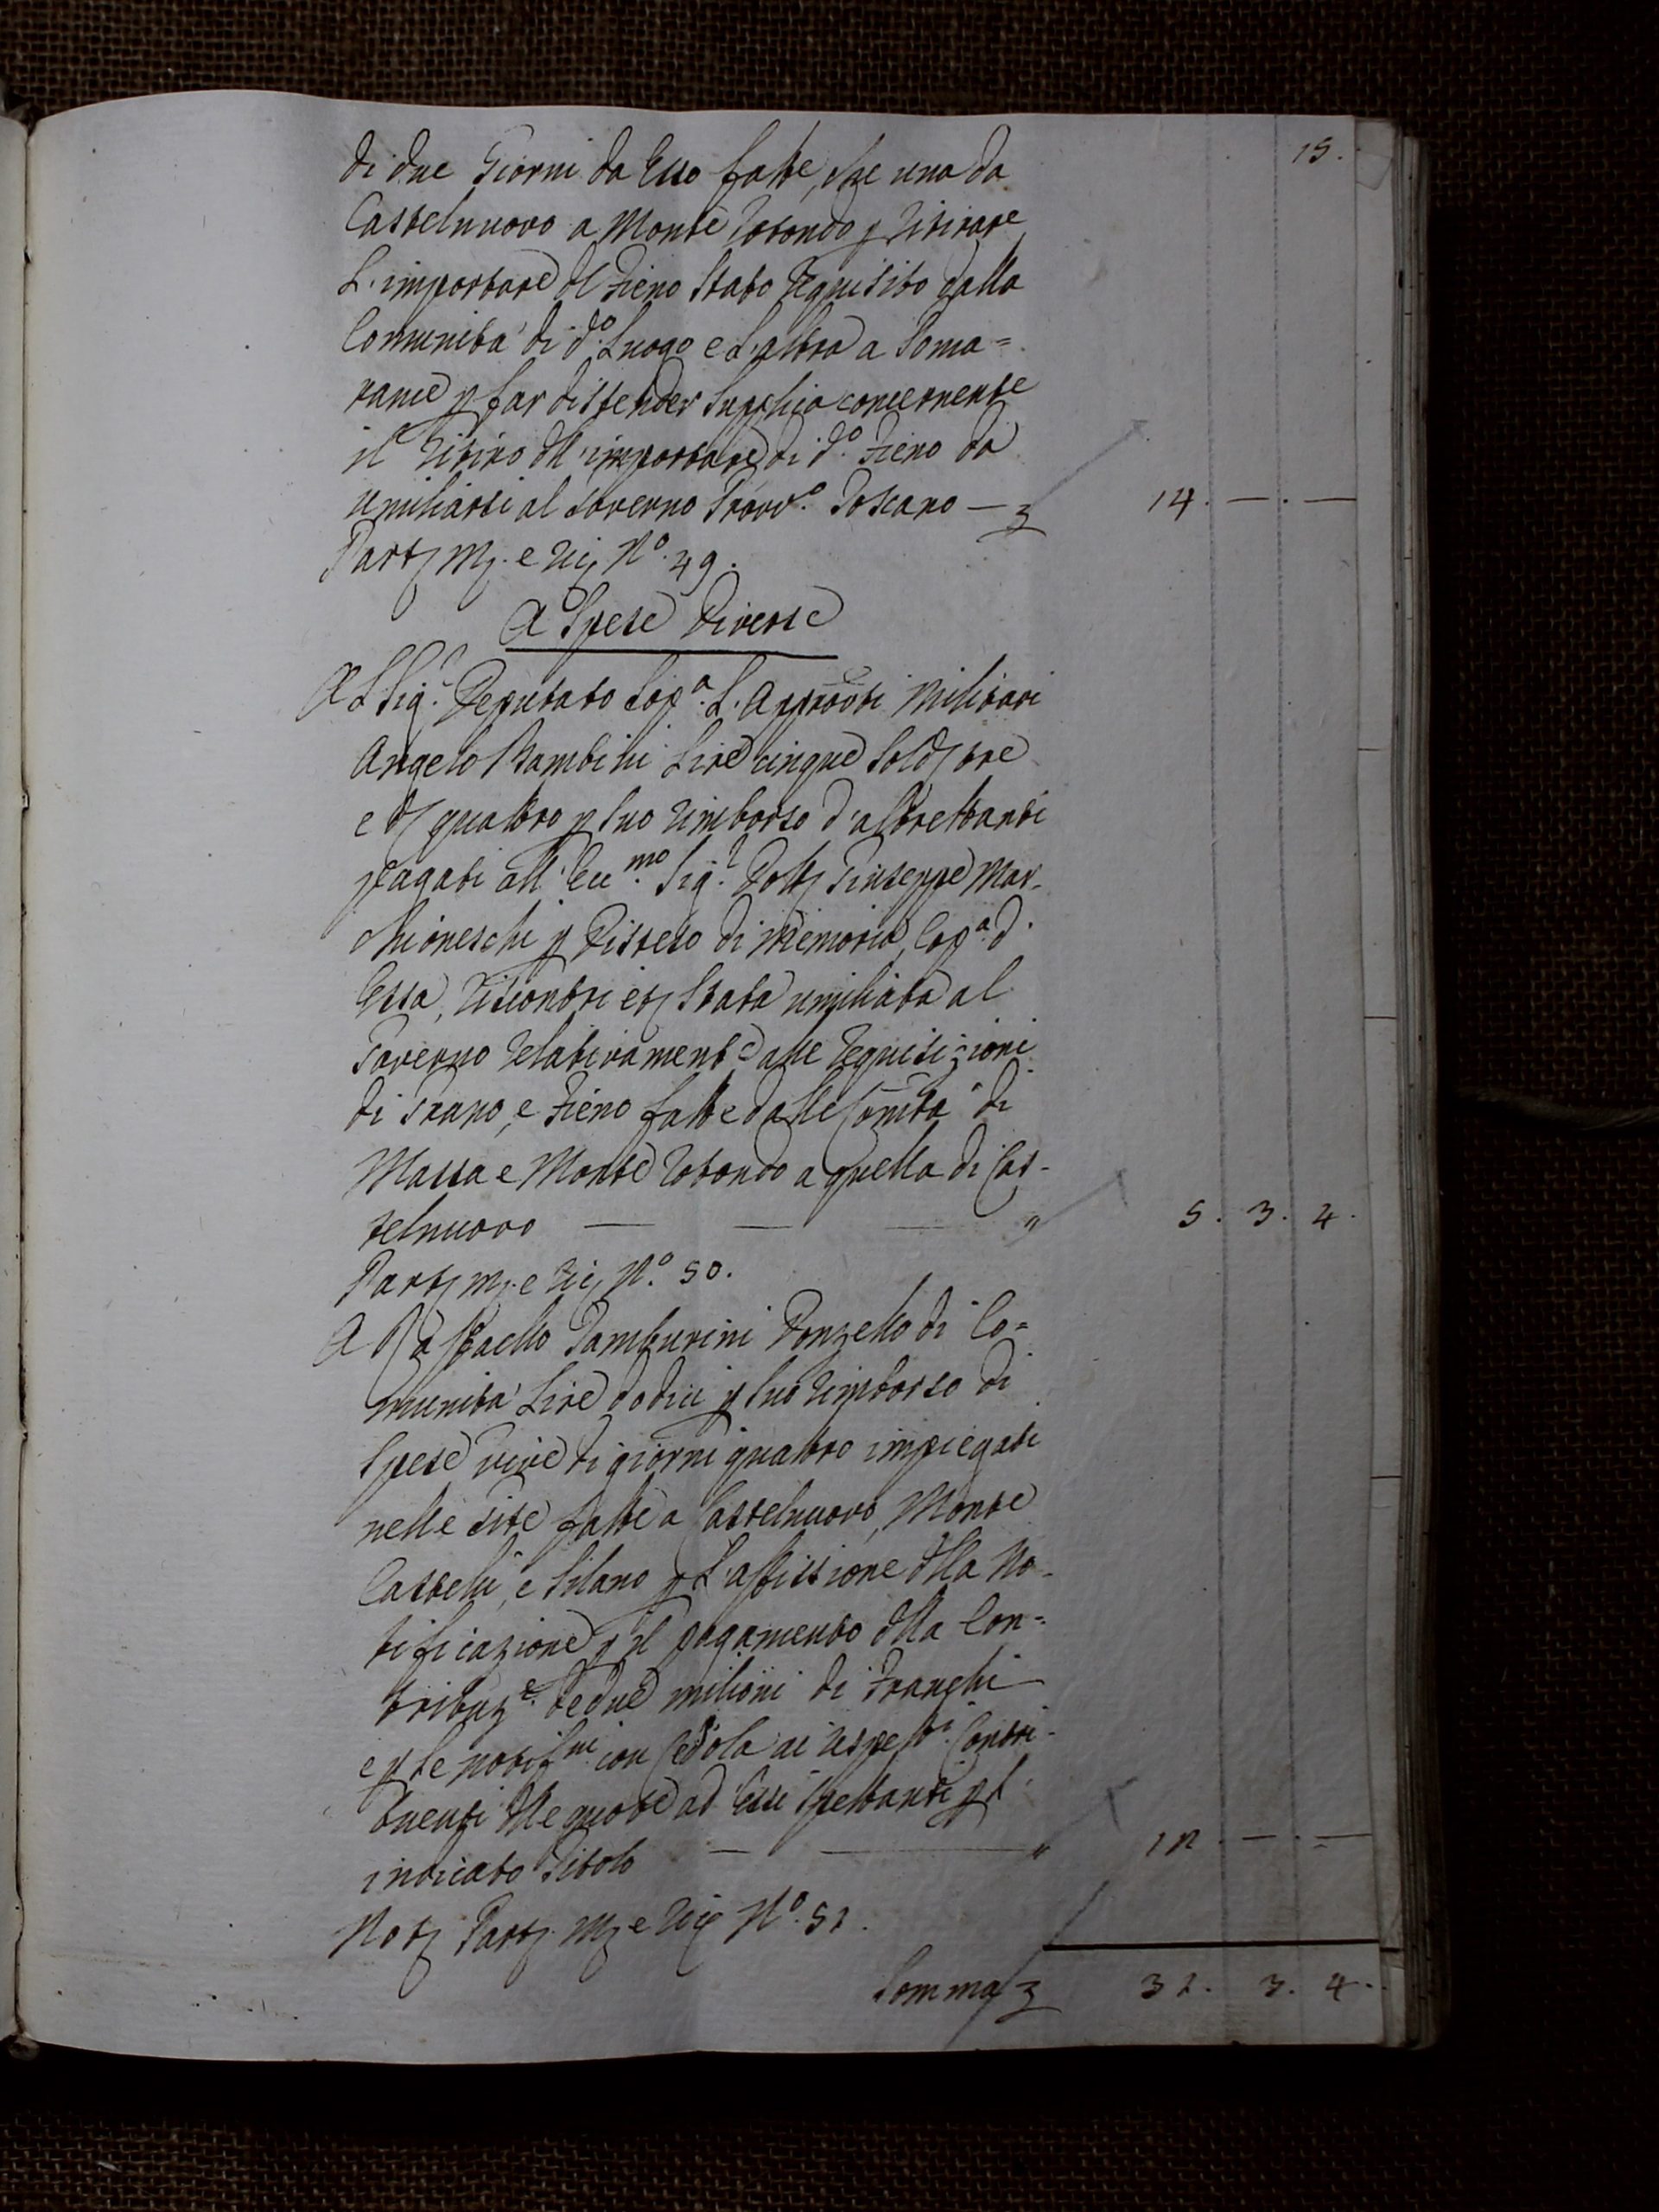 15.
di due Giorni da Esso fatte, che una da
Castelnuovo a Monte Rotondo p Ritirare
L'importare del Fieno stato Requisito dalla
Comunità di do. Luogo e l'altra a Poma=
rance p far distender supplica concernente
il Ritiro dell'importare di do. Fieno da
umiliarsi al Governo Provv.o Toscano — 14. — . —
Part. M. e Ric. N.o 49.
A Spese Diverse
Al Sig.r Deputato sop.a L'Approvti Militari
Angelo Bambini Lire cinque soldi tre
e d. quattro p suo rimborso d'altrettanti
pagati all'Ecc.mo Sig.r Dott. Giuseppe Mar-
chioneschi p Disteso di Memoria, Cop.a d'
Essa, Riscontri et. stata umiliata al
Governo relativamente alle Requisizioni
di Grano, e Fieno fatte dalle Comità di
Massa e Monte Rotondo a quella di Cas-
telnuovo — — — " 5. 3. 4.
Part. M. e Ric. N.o 50.
A Raffaello Tamburini Donzello di Co=
munità Lire dodici p suo rimborso di
spese vive di giorni quattro impiegati
nelle Gite fatte a Castelnuovo, Monte
Castelli, e Silano p l'affissione della No-
tificazione p il pagamento della Con=
tribuz.e de due milioni di Franchi
e p le notif.ni con Cedola ai rispett.i Contri-
buenti delle quote ad Essi spettanti p l'
indicato Titolo — — " 12. — . —
Not. Part. M. e Ric. N.o 51.
Somma 31. 3. 4.